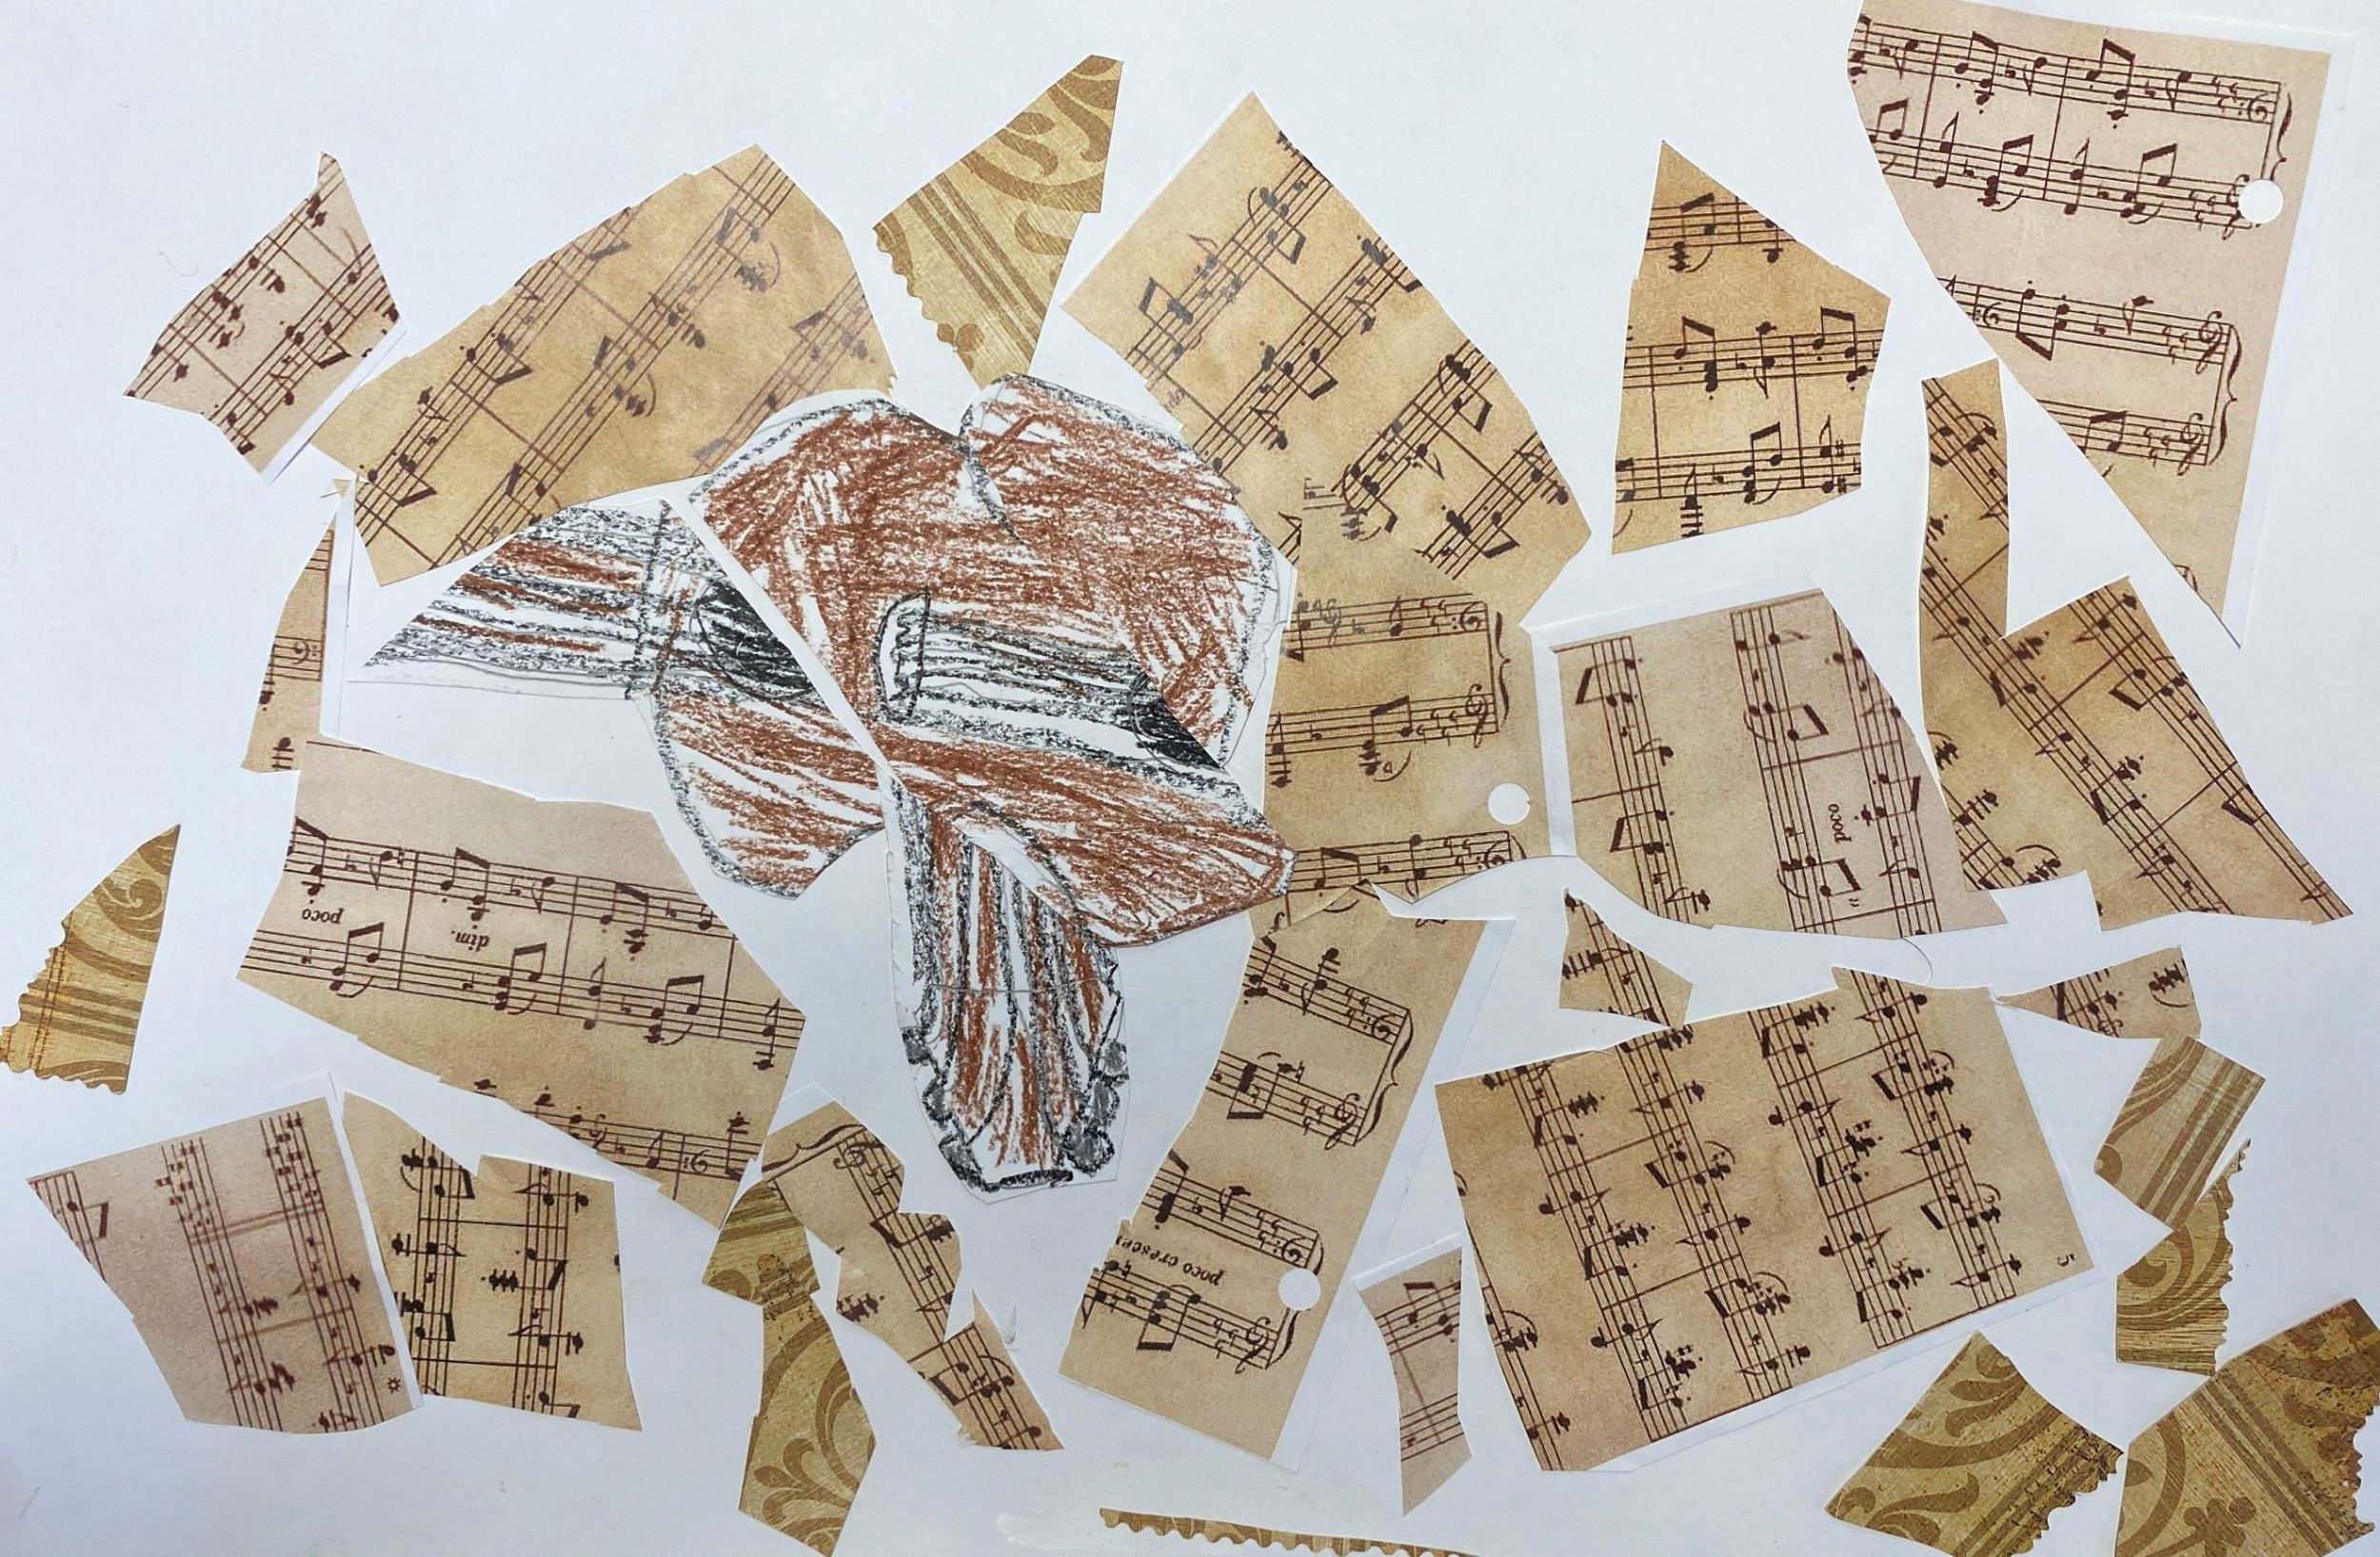 poco
poco
dim.
poco crescen